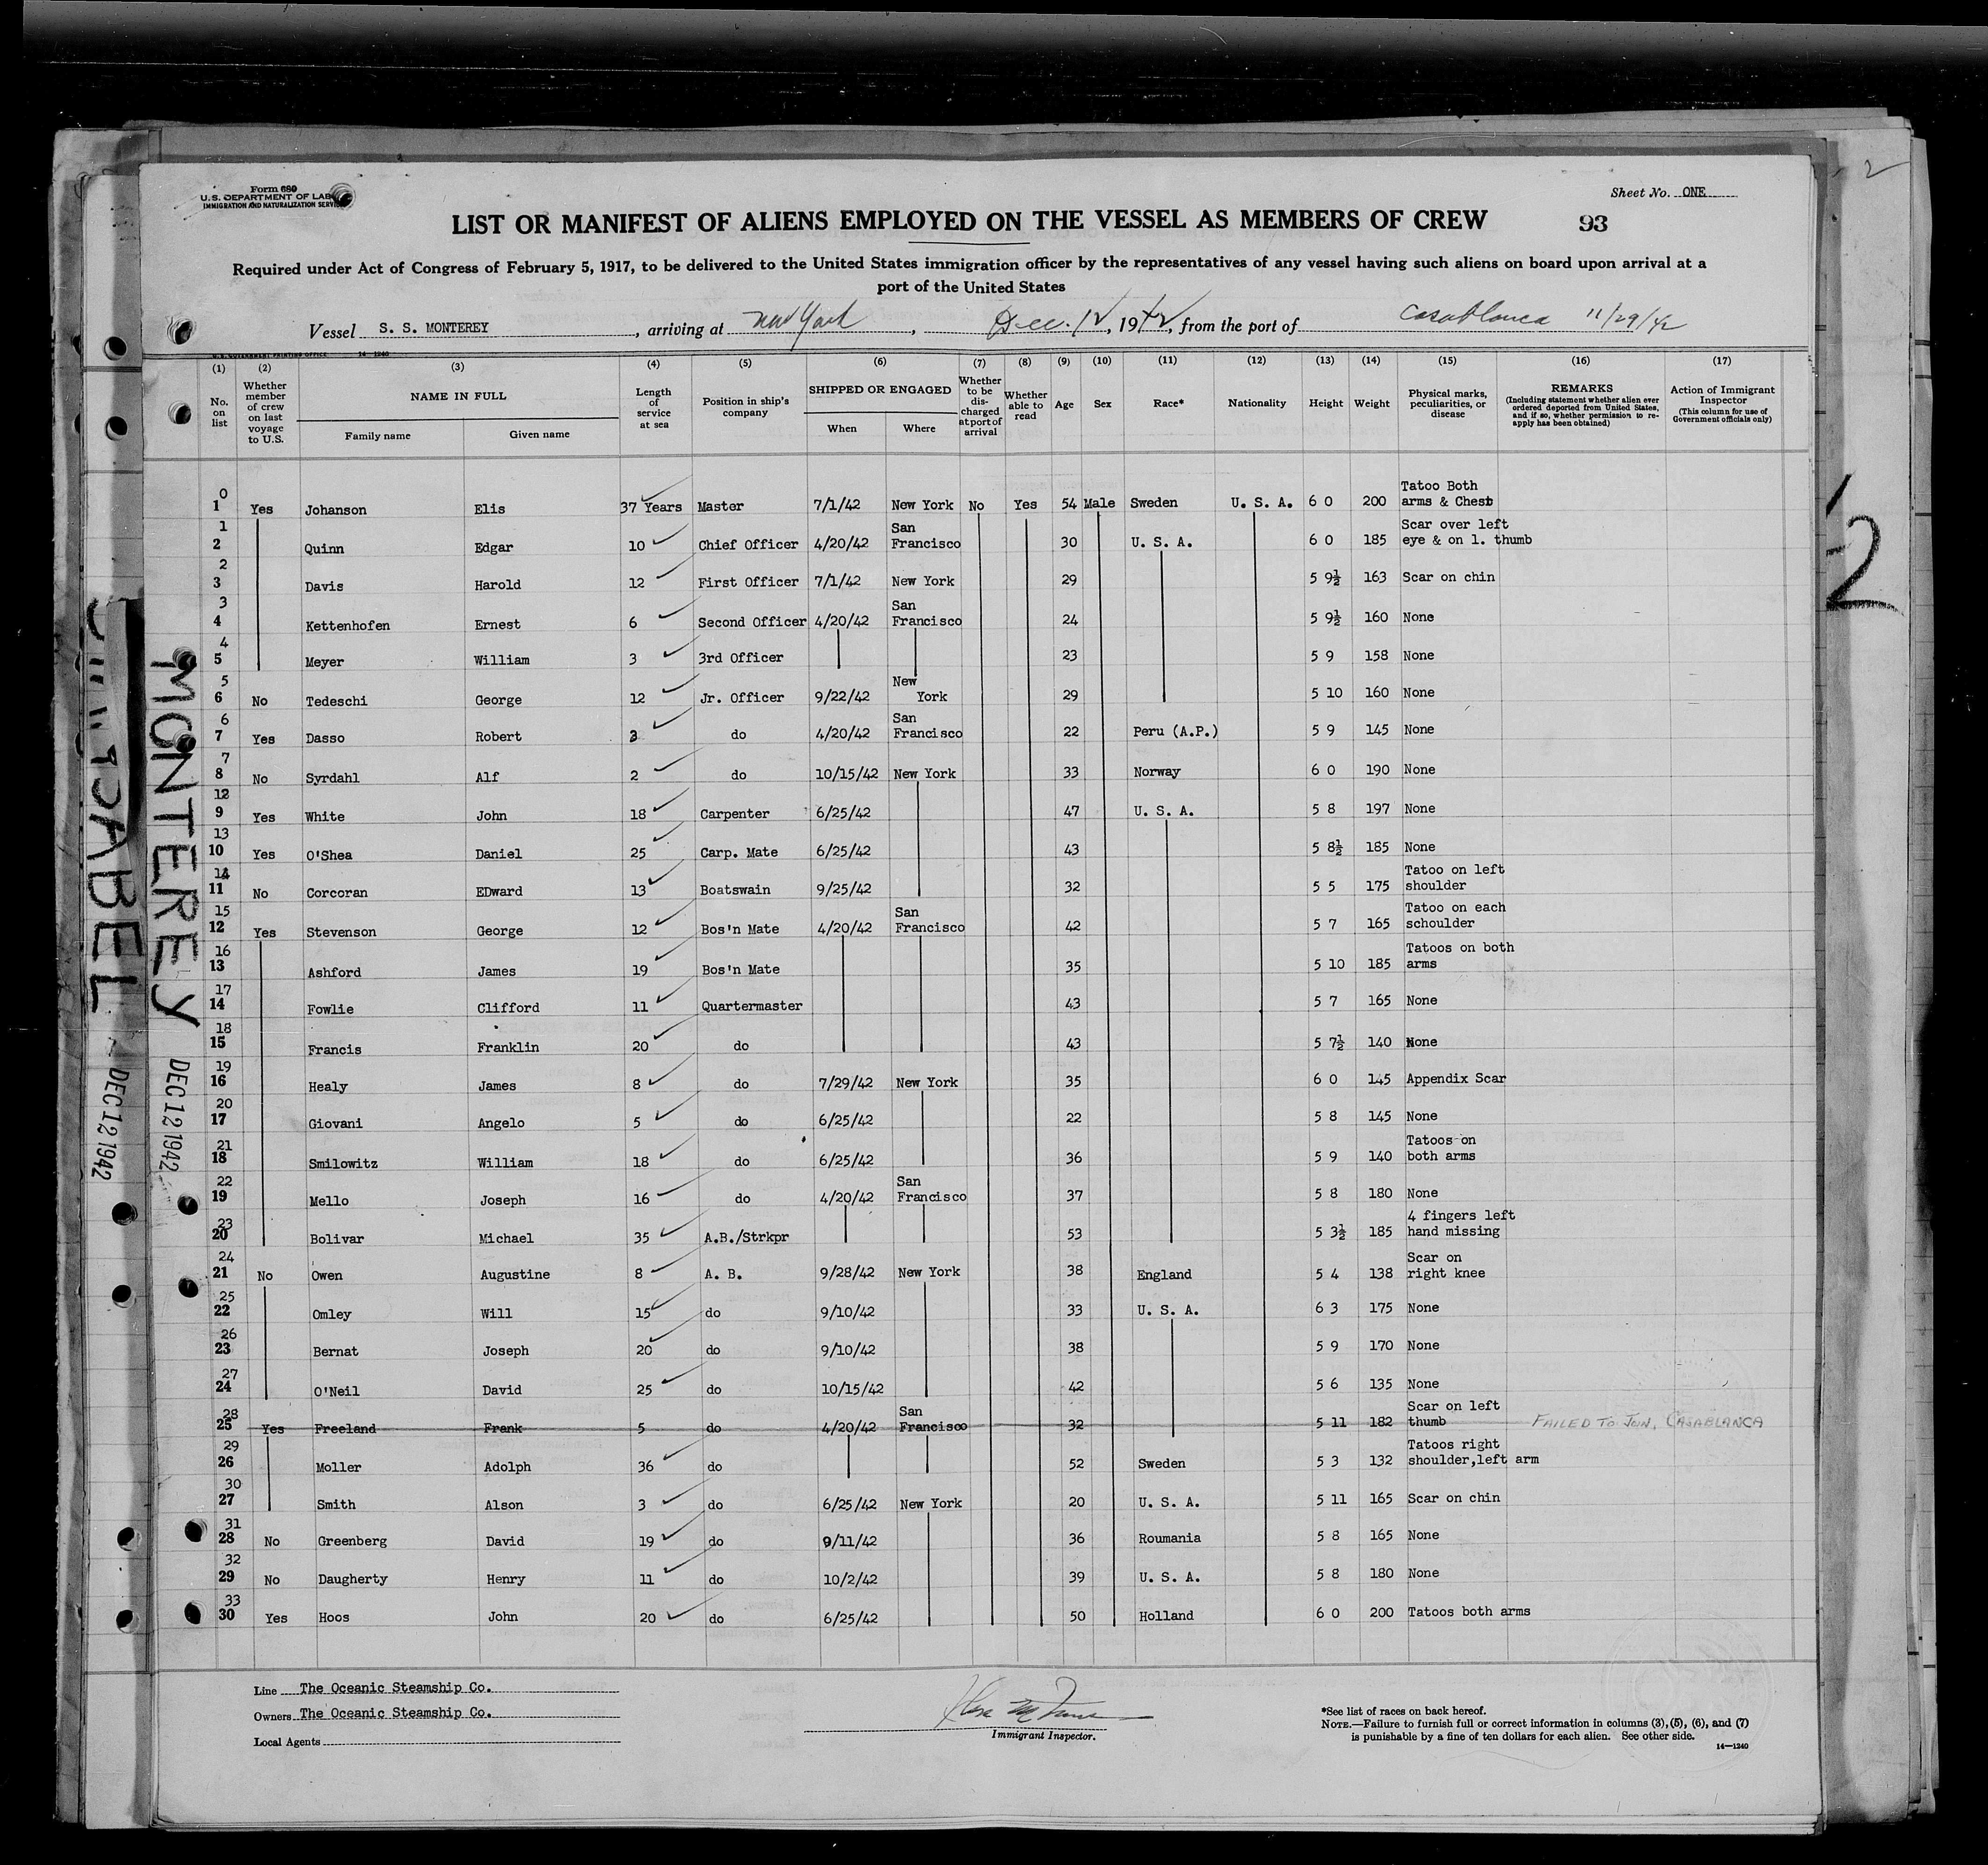 Form 680
U.S. DEPARTMENT OF LAB
IMMIGRATION AND NATURALIZATION SERV
Sheet No. ONE
LIST OR MANIFEST OF ALIENS EMPLOYED ON THE VESSEL AS MEMBERS OF CREW
93
Required under Act of Congress of February 5, 1917, to be delivered to the United States immigration officer by the representatives of any vessel having such aliens on board upon arrival at a
port of the United States
Vessel S. S. MONTEREY, arriving at New York, Dec. 12, 1942, from the port of Casablanca 11/29/42
U.S. GOVERNMENT PRINTING OFFICE 14—1240
(1) (2) (3) (4) (5) (6) (7) (8) (9) (10) (11) (12) (13) (14) (15) (16) (17)
No. on list
Whether member of crew on last voyage to U.S.
NAME IN FULL
Family name
Given name
Length of service at sea
Position in ship's company
SHIPPED OR ENGAGED
When
Where
Whether to be discharged at port of arrival
Whether able to read
Age
Sex
Race*
Nationality
Height
Weight
Physical marks, peculiarities, or disease
REMARKS
(Including statement whether alien ever ordered deported from United States, and if so, whether permission to re-apply has been obtained)
Action of Immigrant Inspector
(This column for use of Government officials only)
0 1 Yes Johanson Elis 37 Years Master 7/1/42 New York No Yes 54 Male Sweden U. S. A. 6 0 200 Tatoo Both arms & Chest
1 2 Quinn Edgar 10 Chief Officer 4/20/42 San Francisco 30 U. S. A. 6 0 185 Scar over left eye & on l. thumb
2 3 Davis Harold 12 First Officer 7/1/42 New York 29 5 9½ 163 Scar on chin
3 4 Kettenhofen Ernest 6 Second Officer 4/20/42 San Francisco 24 5 9½ 160 None
4 5 Meyer William 3 3rd Officer 23 5 9 158 None
5 6 No Tedeschi George 12 Jr. Officer 9/22/42 New York 29 5 10 160 None
6 7 Yes Dasso Robert 3 do 4/20/42 San Francisco 22 Peru (A.P.) 5 9 145 None
7 8 No Syrdahl Alf 2 do 10/15/42 New York 33 Norway 6 0 190 None
12 9 Yes White John 18 Carpenter 6/25/42 47 U. S. A. 5 8 197 None
13 10 Yes O'Shea Daniel 25 Carp. Mate 6/25/42 43 5 8½ 185 None
14 11 No Corcoran EDward 13 Boatswain 9/25/42 32 5 5 175 Tatoo on left shoulder
15 12 Yes Stevenson George 12 Bos'n Mate 4/20/42 San Francisco 42 5 7 165 Tatoo on each schoulder
16 13 Ashford James 19 Bos'n Mate 35 5 10 185 Tatoos on both arms
17 14 Fowlie Clifford 11 Quartermaster 43 5 7 165 None
18 15 Francis Franklin 20 do 43 5 7½ 140 None
19 16 Healy James 8 do 7/29/42 New York 35 6 0 145 Appendix Scar
20 17 Giovani Angelo 5 do 6/25/42 22 5 8 145 None
21 18 Smilowitz William 18 do 6/25/42 36 5 9 140 Tatoos on both arms
22 19 Mello Joseph 16 do 4/20/42 San Francisco 37 5 8 180 None
23 20 Bolivar Michael 35 A.B./Strkpr 53 5 3½ 185 4 fingers left hand missing
24 21 No Owen Augustine 8 A. B. 9/28/42 New York 38 England 5 4 138 Scar on right knee
25 22 Omley Will 15 do 9/10/42 33 U. S. A. 6 3 175 None
26 23 Bernat Joseph 20 do 9/10/42 38 5 9 170 None
27 24 O'Neil David 25 do 10/15/42 42 5 6 135 None
28 25 Yes Freeland Frank 5 do 4/20/42 San Francisco 32 5 11 182 Scar on left thumb FAILED TO JOIN, CASABLANCA
29 26 Moller Adolph 36 do 52 Sweden 5 3 132 Tatoos right shoulder,left arm
30 27 Smith Alson 3 do 6/25/42 New York 20 U. S. A. 5 11 165 Scar on chin
31 28 No Greenberg David 19 do 9/11/42 36 Roumania 5 8 165 None
32 29 No Daugherty Henry 11 do 10/2/42 39 U. S. A. 5 8 180 None
33 30 Yes Hoos John 20 do 6/25/42 50 Holland 6 0 200 Tatoos both arms
Line The Oceanic Steamship Co.
Owners The Oceanic Steamship Co.
Local Agents
Immigrant Inspector.
*See list of races on back hereof.
NOTE.—Failure to furnish full or correct information in columns (3), (5), (6), and (7)
is punishable by a fine of ten dollars for each alien. See other side.
14—1240
MONTEREY
DEC 12 1942
DEC 12 1942
2
2